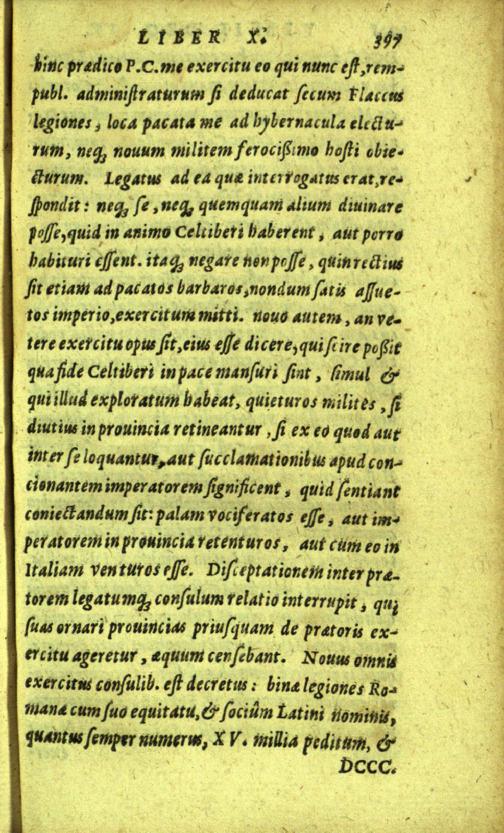 LIBER X. 397
hinc prædico P.C. me exercitu eo qui nunc eſt, rem-
publ. adminiſtraturum ſi deducat ſecum Flaccus
legiones, loca pacata me ad hybernacula electu-
rum, neqꝫ nouum militem ferociſsimo hoſti obie-
cturum. Legatus ad ea quæ interrogatus erat, re-
ſpondit: neqꝫ ſe, neqꝫ quemquam alium diuinare
poſſe, quid in animo Celtiberi haberent, aut porro
habituri eſſent. itaqꝫ negare non poſſe, quin rectius
ſit etiam ad pacatos barbaros, nondum ſatis aſſue-
tos imperio, exercitum mitti. nouo autem, an ve-
tere exercitu opus ſit, eius eſſe dicere, qui ſcire poßit
qua fide Celtiberi in pace manſuri ſint, ſimul &
qui illud exploratum habeat, quieturos milites, ſi
diutius in prouincia retineantur, ſi ex eo quod aut
inter ſe loquantur, aut ſucclamationibus apud con-
cionantem imperatorem ſignificent, quid ſentiant
coniectandum ſit: palam vociferatos eſſe, aut im-
peratorem in prouincia retenturos, aut cum eo in
Italiam venturos eſſe. Diſceptationem inter præ-
torem legatumqꝫ conſulum relatio interrupit, qui
ſuas ornari prouincias priuſquam de prætoris ex-
ercitu ageretur, æquum cenſebant. Nouus omnis
exercitus conſulib. eſt decretus: binæ legiones Ro-
manæ cum ſuo equitatu, & ſociûm Latini nominis,
quantus ſemper numerus, XV. millia peditum, &
DCCC.